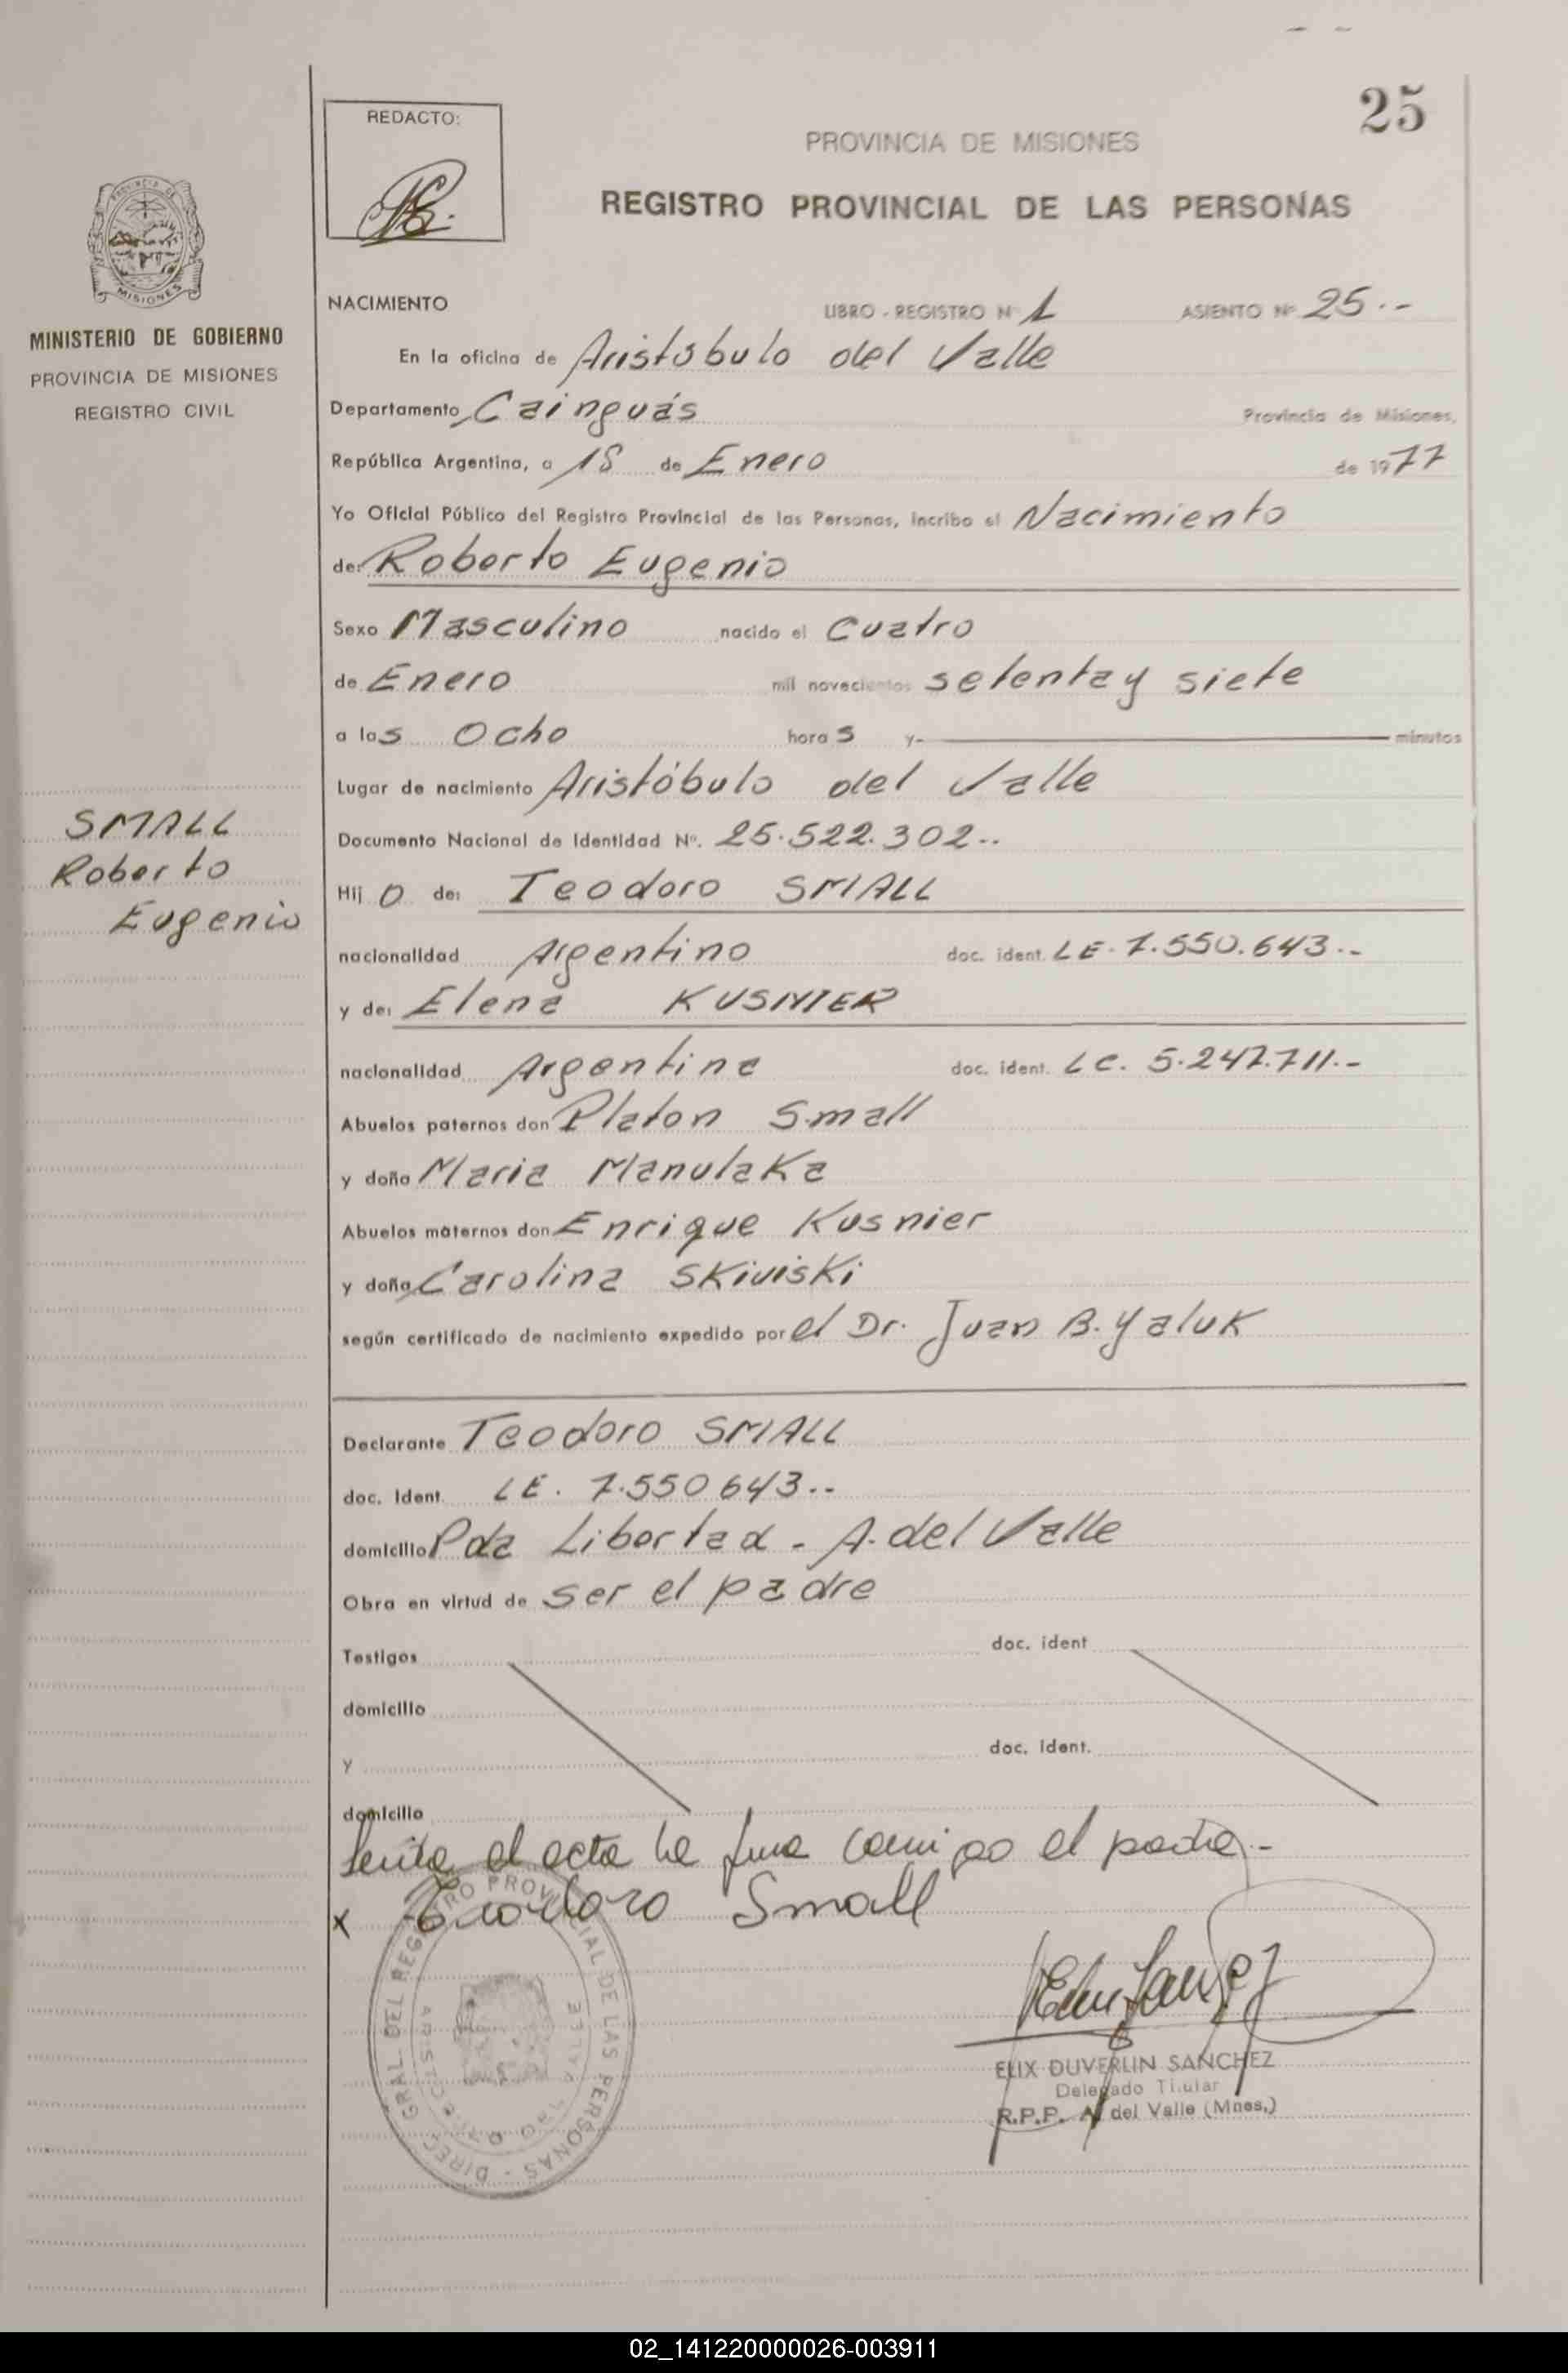 25
REDACTO:
PROVINCIA DE MISIONES
REGISTRO PROVINCIAL DE LAS PERSONAS
MISIONES
MINISTERIO DE GOBIERNO
PROVINCIA DE MISIONES
REGISTRO CIVIL
NACIMIENTO LIBRO - REGISTRO Nº 1 ASIENTO Nº 25.-
En la oficina de Aristóbulo del Valle
Departamento Cainguás Provincia de Misiones,
República Argentina, a 18 de Enero de 1977
Yo Oficial Público del Registro Provincial de las Personas, incribo el Nacimiento
de: Roberto Eugenio
Sexo Masculino nacido el Cuatro
de Enero mil novecientos setenta y siete
a las Ocho horas y- minutos
Lugar de nacimiento Aristóbulo del Valle
Documento Nacional de Identidad Nº. 25.522.302..
SMALL
Roberto
Eugenio
Hijo de: Teodoro SMALL
nacionalidad Argentino doc. ident. LE. 7.550.643.-
y de: Elena KUSNIER
nacionalidad Argentina doc. ident. LC. 5.247.711.-
Abuelos paternos don Platon Small
y doña Maria Manulaka
Abuelos maternos don Enrique Kusnier
y doña Carolina Skiviski
según certificado de nacimiento expedido por el Dr. Juan B. Yaluk
Declarante Teodoro SMALL
doc. Ident. LE. 7.550643..
domicilio Pda Libertad - A. del Valle
Obra en virtud de ser el padre
Testigos doc. ident
domicilio
y doc. ident.
domicilio
el acta la conmigo el padre.-
x Teodoro Small
DIREC. GRAL. DEL REGISTRO PROVINCIAL DE LAS PERSONAS
ELIX DUVERLIN SANCHEZ
Delegado Titular
R.P.P. A. del Valle (Mnes.)
02_141220000026-003911